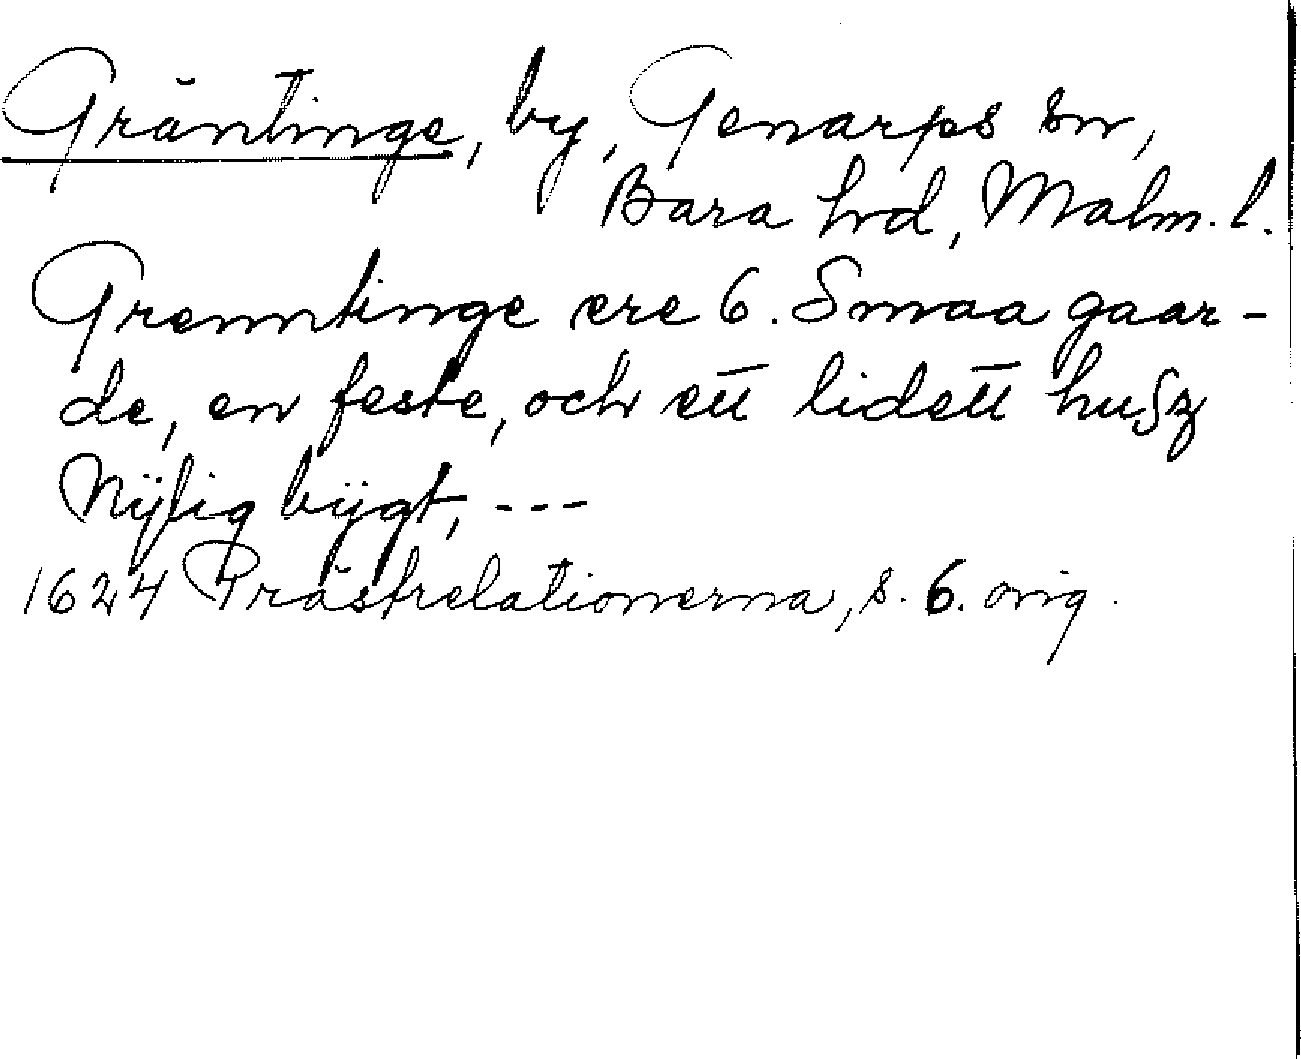 Gräntinge, by, Genarps sn,
Bara hrd, Malm. l.
Grenntinge ere 6. Smaa gaar-
de, en feste, och ett lidett husz
Nÿlig bÿgt, ---
1624 Prästrelationerna, s. 6. orig.